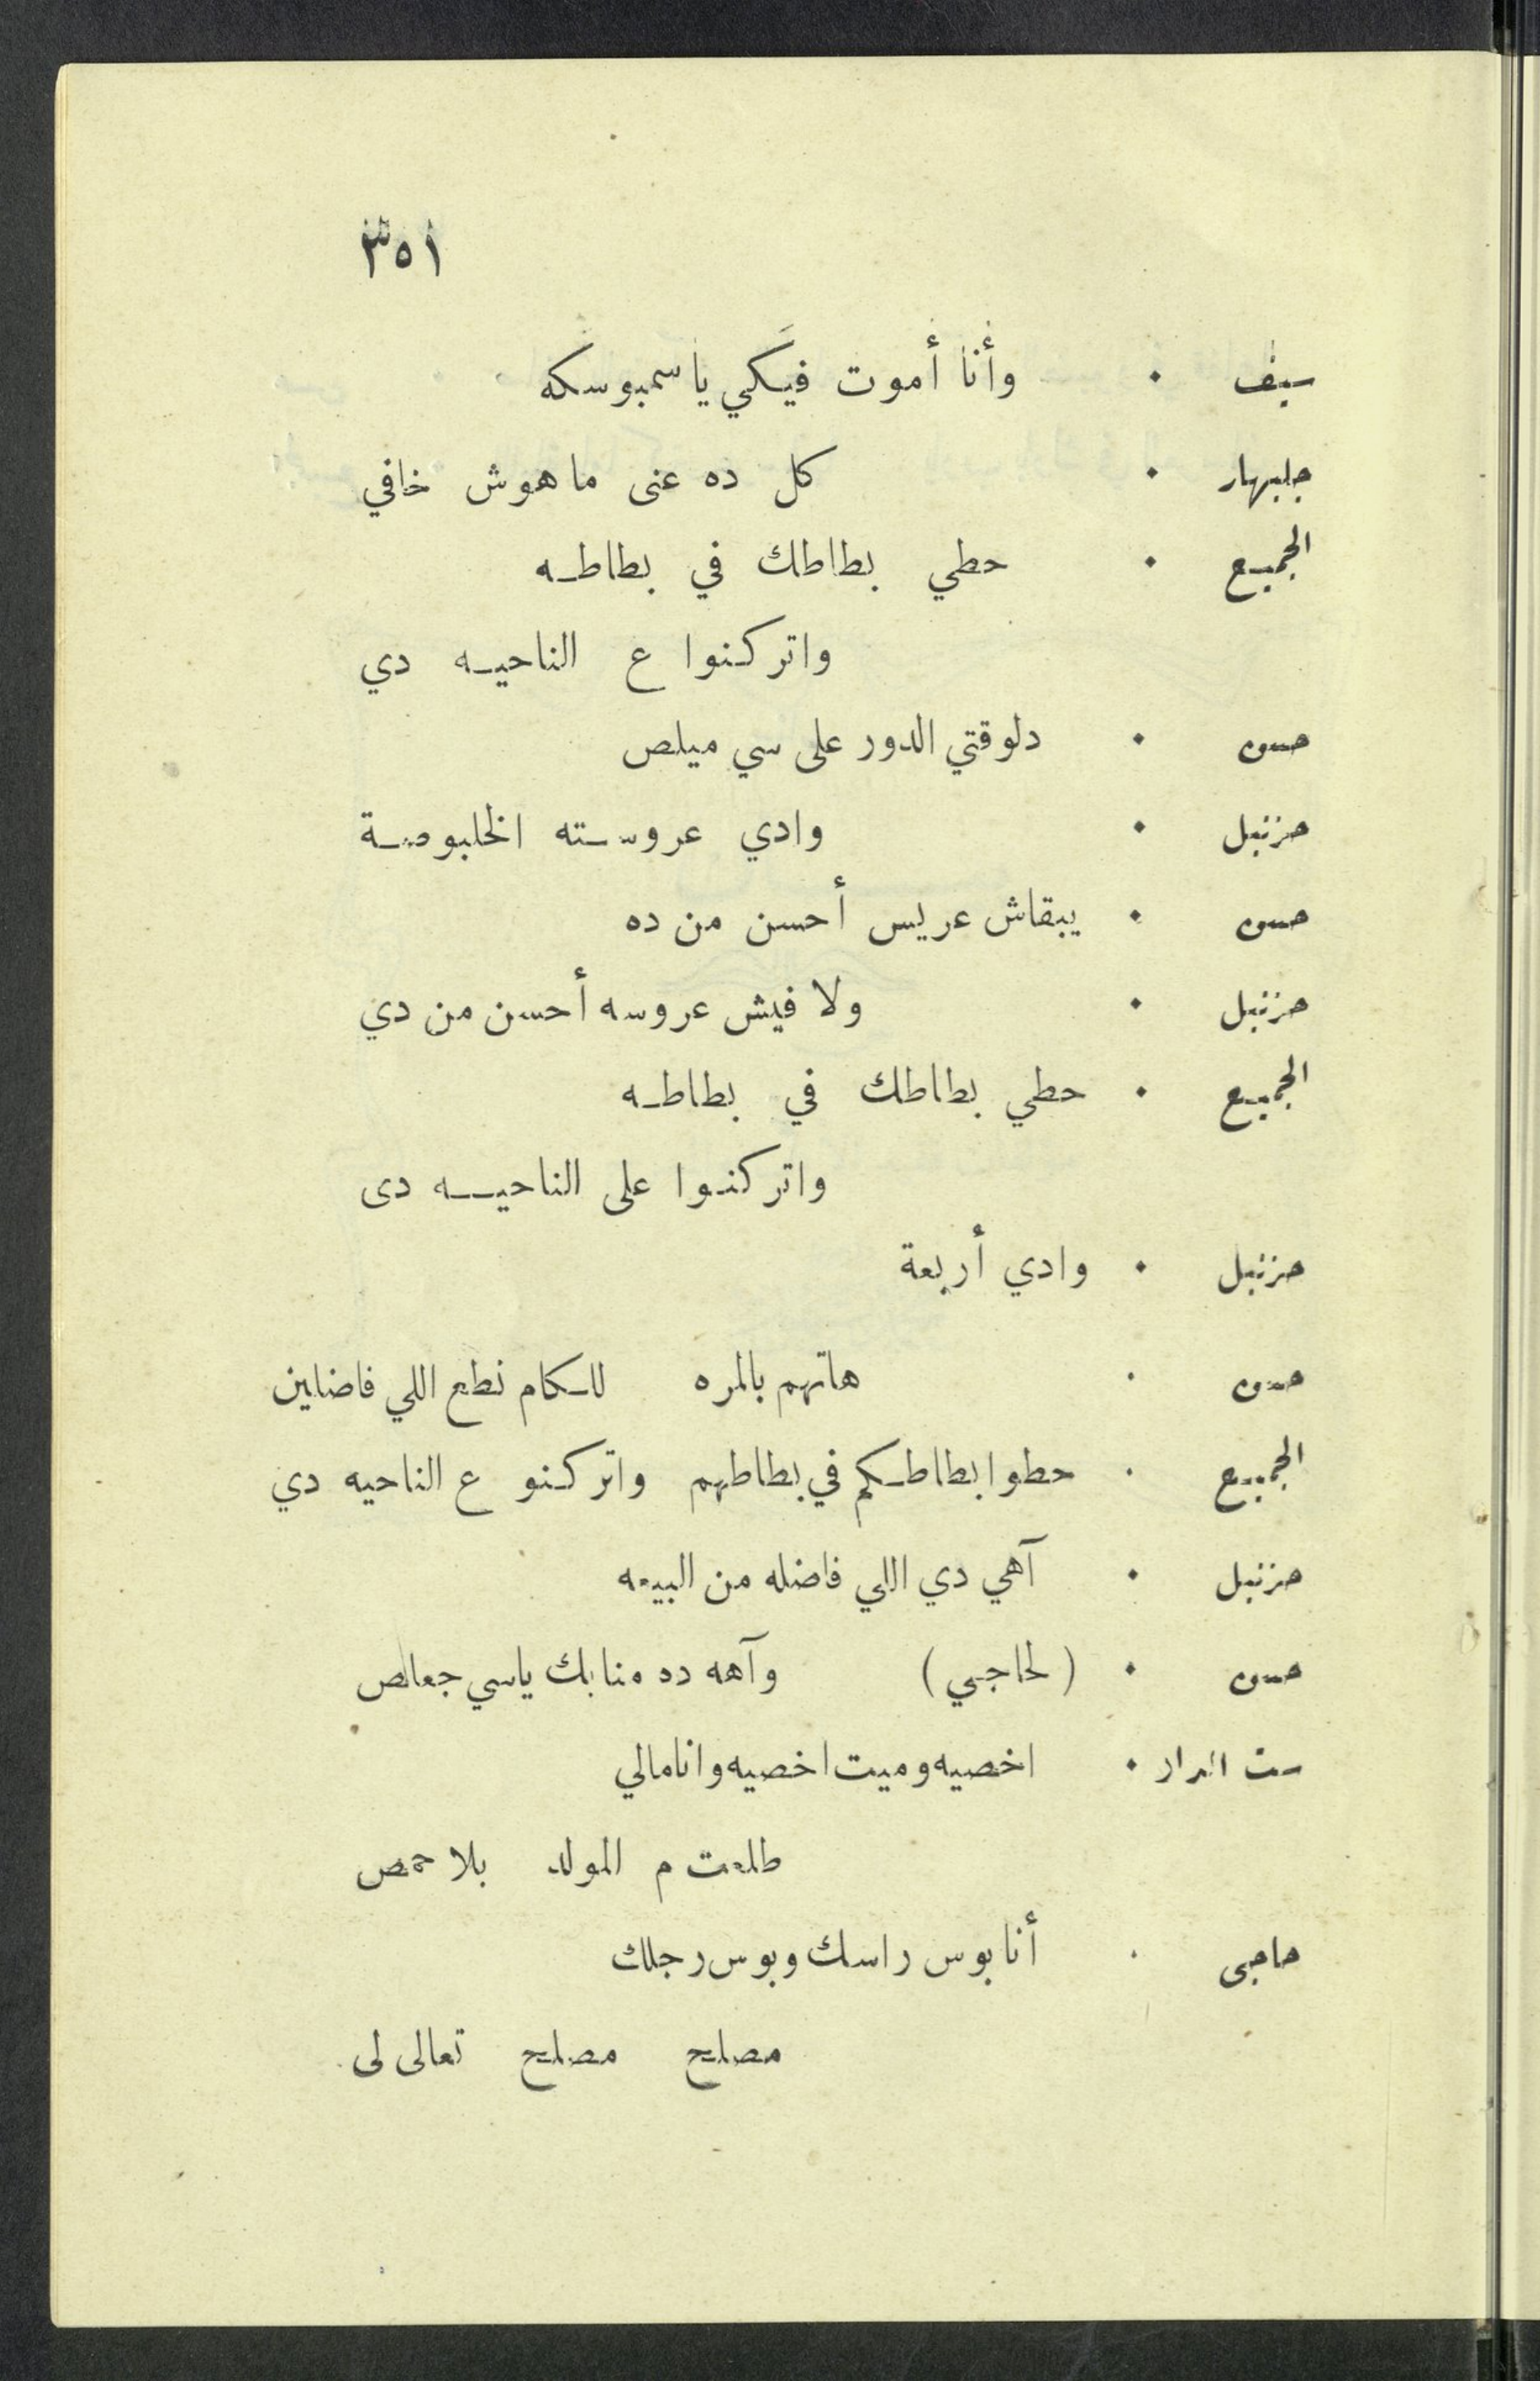 ٣٥١
سيف . وأنا أموت فيكي ياسمبوسكه
جلبهار . كل ده عنى ماهوش خافي
الجميع . حطي بطاطك في بطاطه
واتركنوا ع الناحيه دي
حسن . دلوقتي الدور على سي ميلص
حزنبل . وادي عروسته الخلبوصة
حسن . يبقاش عريس أحسن من ده
حزنبل . ولا فيش عروسه أحسن من دي
الجميع . حطي بطاطك في بطاطه
واتركنوا على الناحيه دى
حزنبل . وادي أربعة
حسن . هاتهم بالمره للكام نطع اللي فاضلين
الجميع . حطوا بطاطكم في بطاطهم واتركنو ع الناحيه دي
حزنبل . آهي دي اللي فاضله من البيعه
حسن . (لحاجي) وآهه ده منابك ياسي جعالص
ست الدار . اخصيه وميت اخصيه وانامالي
طلعت م المولد بلا حمص
حاجى . أنا بوس راسك وبوس رجلك
مصلح مصلح تعالى لى